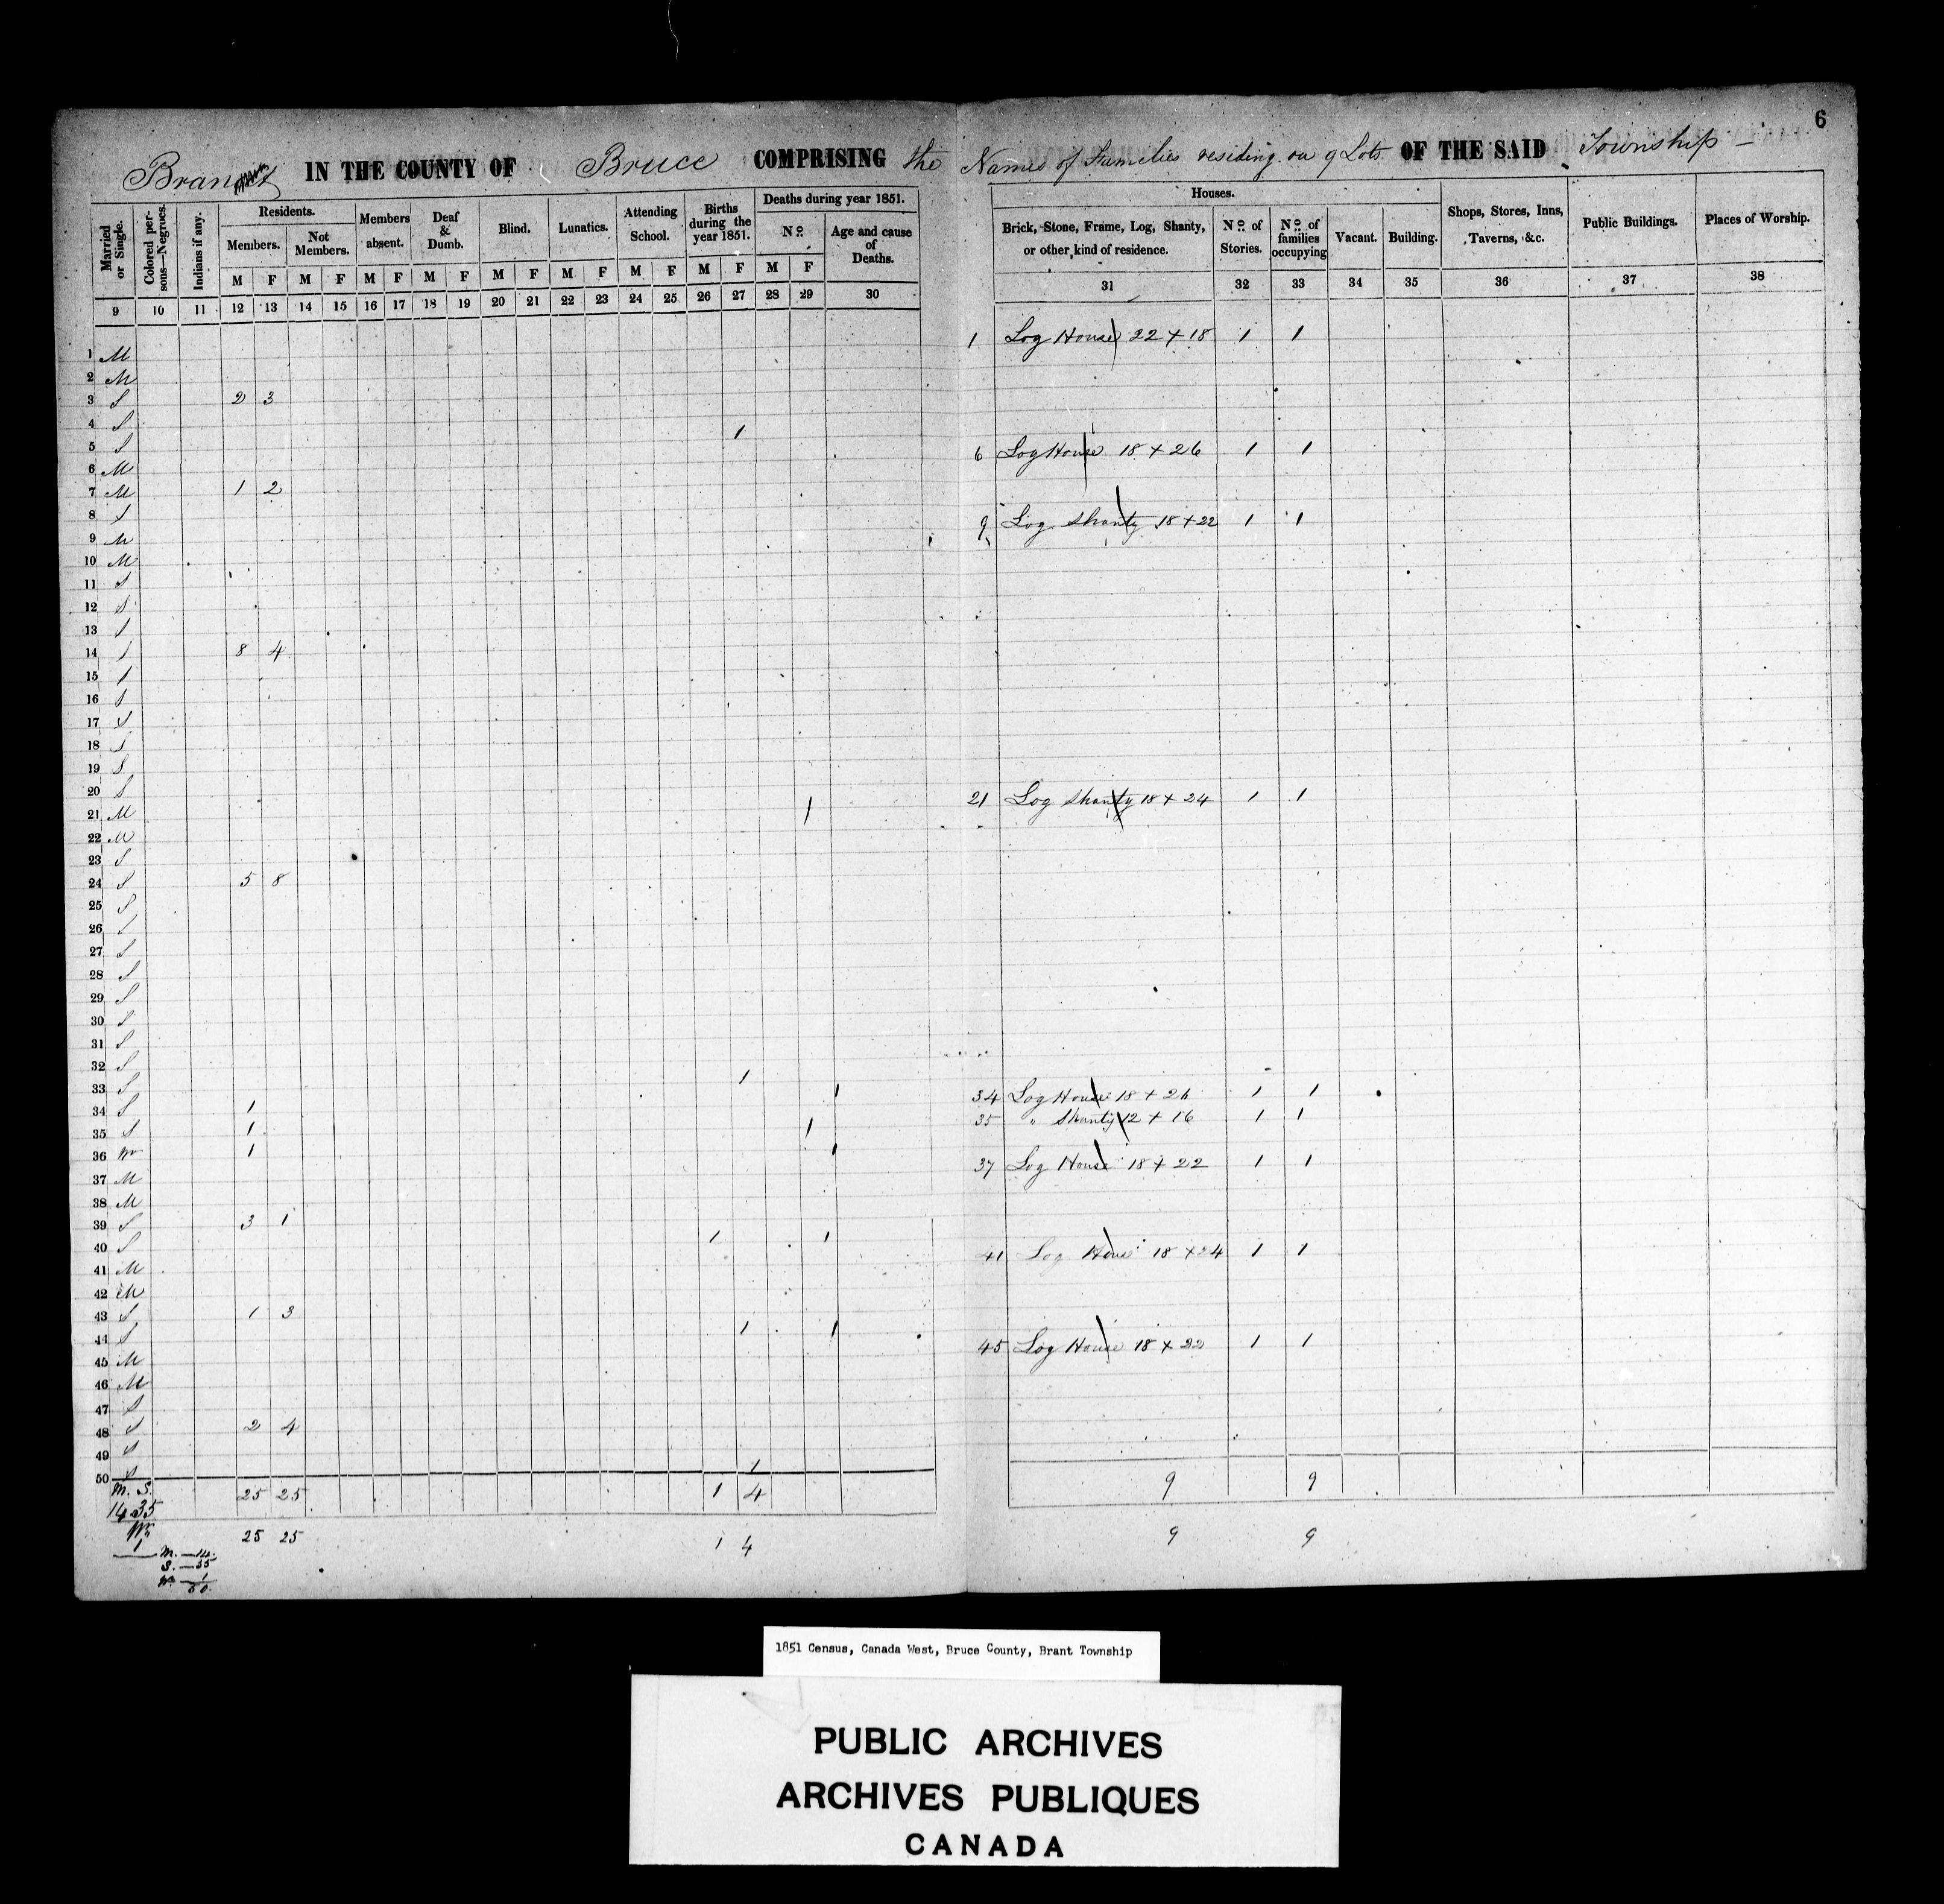 6
Brant IN THE COUNTY OF Bruce COMPRISING the Names of Families residing on 9 Lots OF THE SAID Township —
Married or Single. Colored persons—Negroes. Indians if any. Residents. Members absent. Deaf & Dumb. Blind. Lunatics. Attending School. Births during the year 1851. Deaths during year 1851. Houses. Shops, Stores, Inns, Taverns, &c. Public Buildings. Places of Worship.
Members. Not Members. No. Age and cause of Deaths. Brick, Stone, Frame, Log, Shanty, or other kind of residence. No. of Stories. No. of families occupying Vacant. Building.
M F M F M F M F M F M F M F M F M F
9 10 11 12 13 14 15 16 17 18 19 20 21 22 23 24 25 26 27 28 29 30 31 32 33 34 35 36 37 38
1 M 1 Log House 22 + 18 1 1
2 M
3 S 2 3
4 S 1
5 S
6 M 6 Log House 18 + 26 1 1
7 M 1 2
8 S
9 M 9 Log Shanty 18 + 22 1 1
10 M
11 S
12 S
13 S
14 S 8 4
15 S
16 S
17 S
18 S
19 S
20 S
21 M 1 21 Log Shanty 18 + 24 1 1
22 M
23 S
24 S 5 8
25 S
26 S
27 S
28 S
29 S
30 S
31 S
32 S
33 S 1 1
34 S 1 34 Log House 18 + 26 1 1
35 S 1 1 35 " Shanty 12 + 16 1 1
36 Wr 1 1
37 M 37 Log House 18 + 22 1 1
38 M
39 S 3 1
40 S 1 1
41 M 41 Log House 18 + 24 1 1
42 M
43 S 1 3
44 S 1 1
45 M 45 Log House 18 + 22 1 1
46 M
47 S
48 S 2 4
49 S
50 S 1
M. S. 25 25 1 4 9 9
14 35
Wr 25 25 1 4 9 9
1
M. — 14
S. — 35
Wr 1
50.
1851 Census, Canada West, Bruce County, Brant Township
PUBLIC ARCHIVES
ARCHIVES PUBLIQUES
CANADA